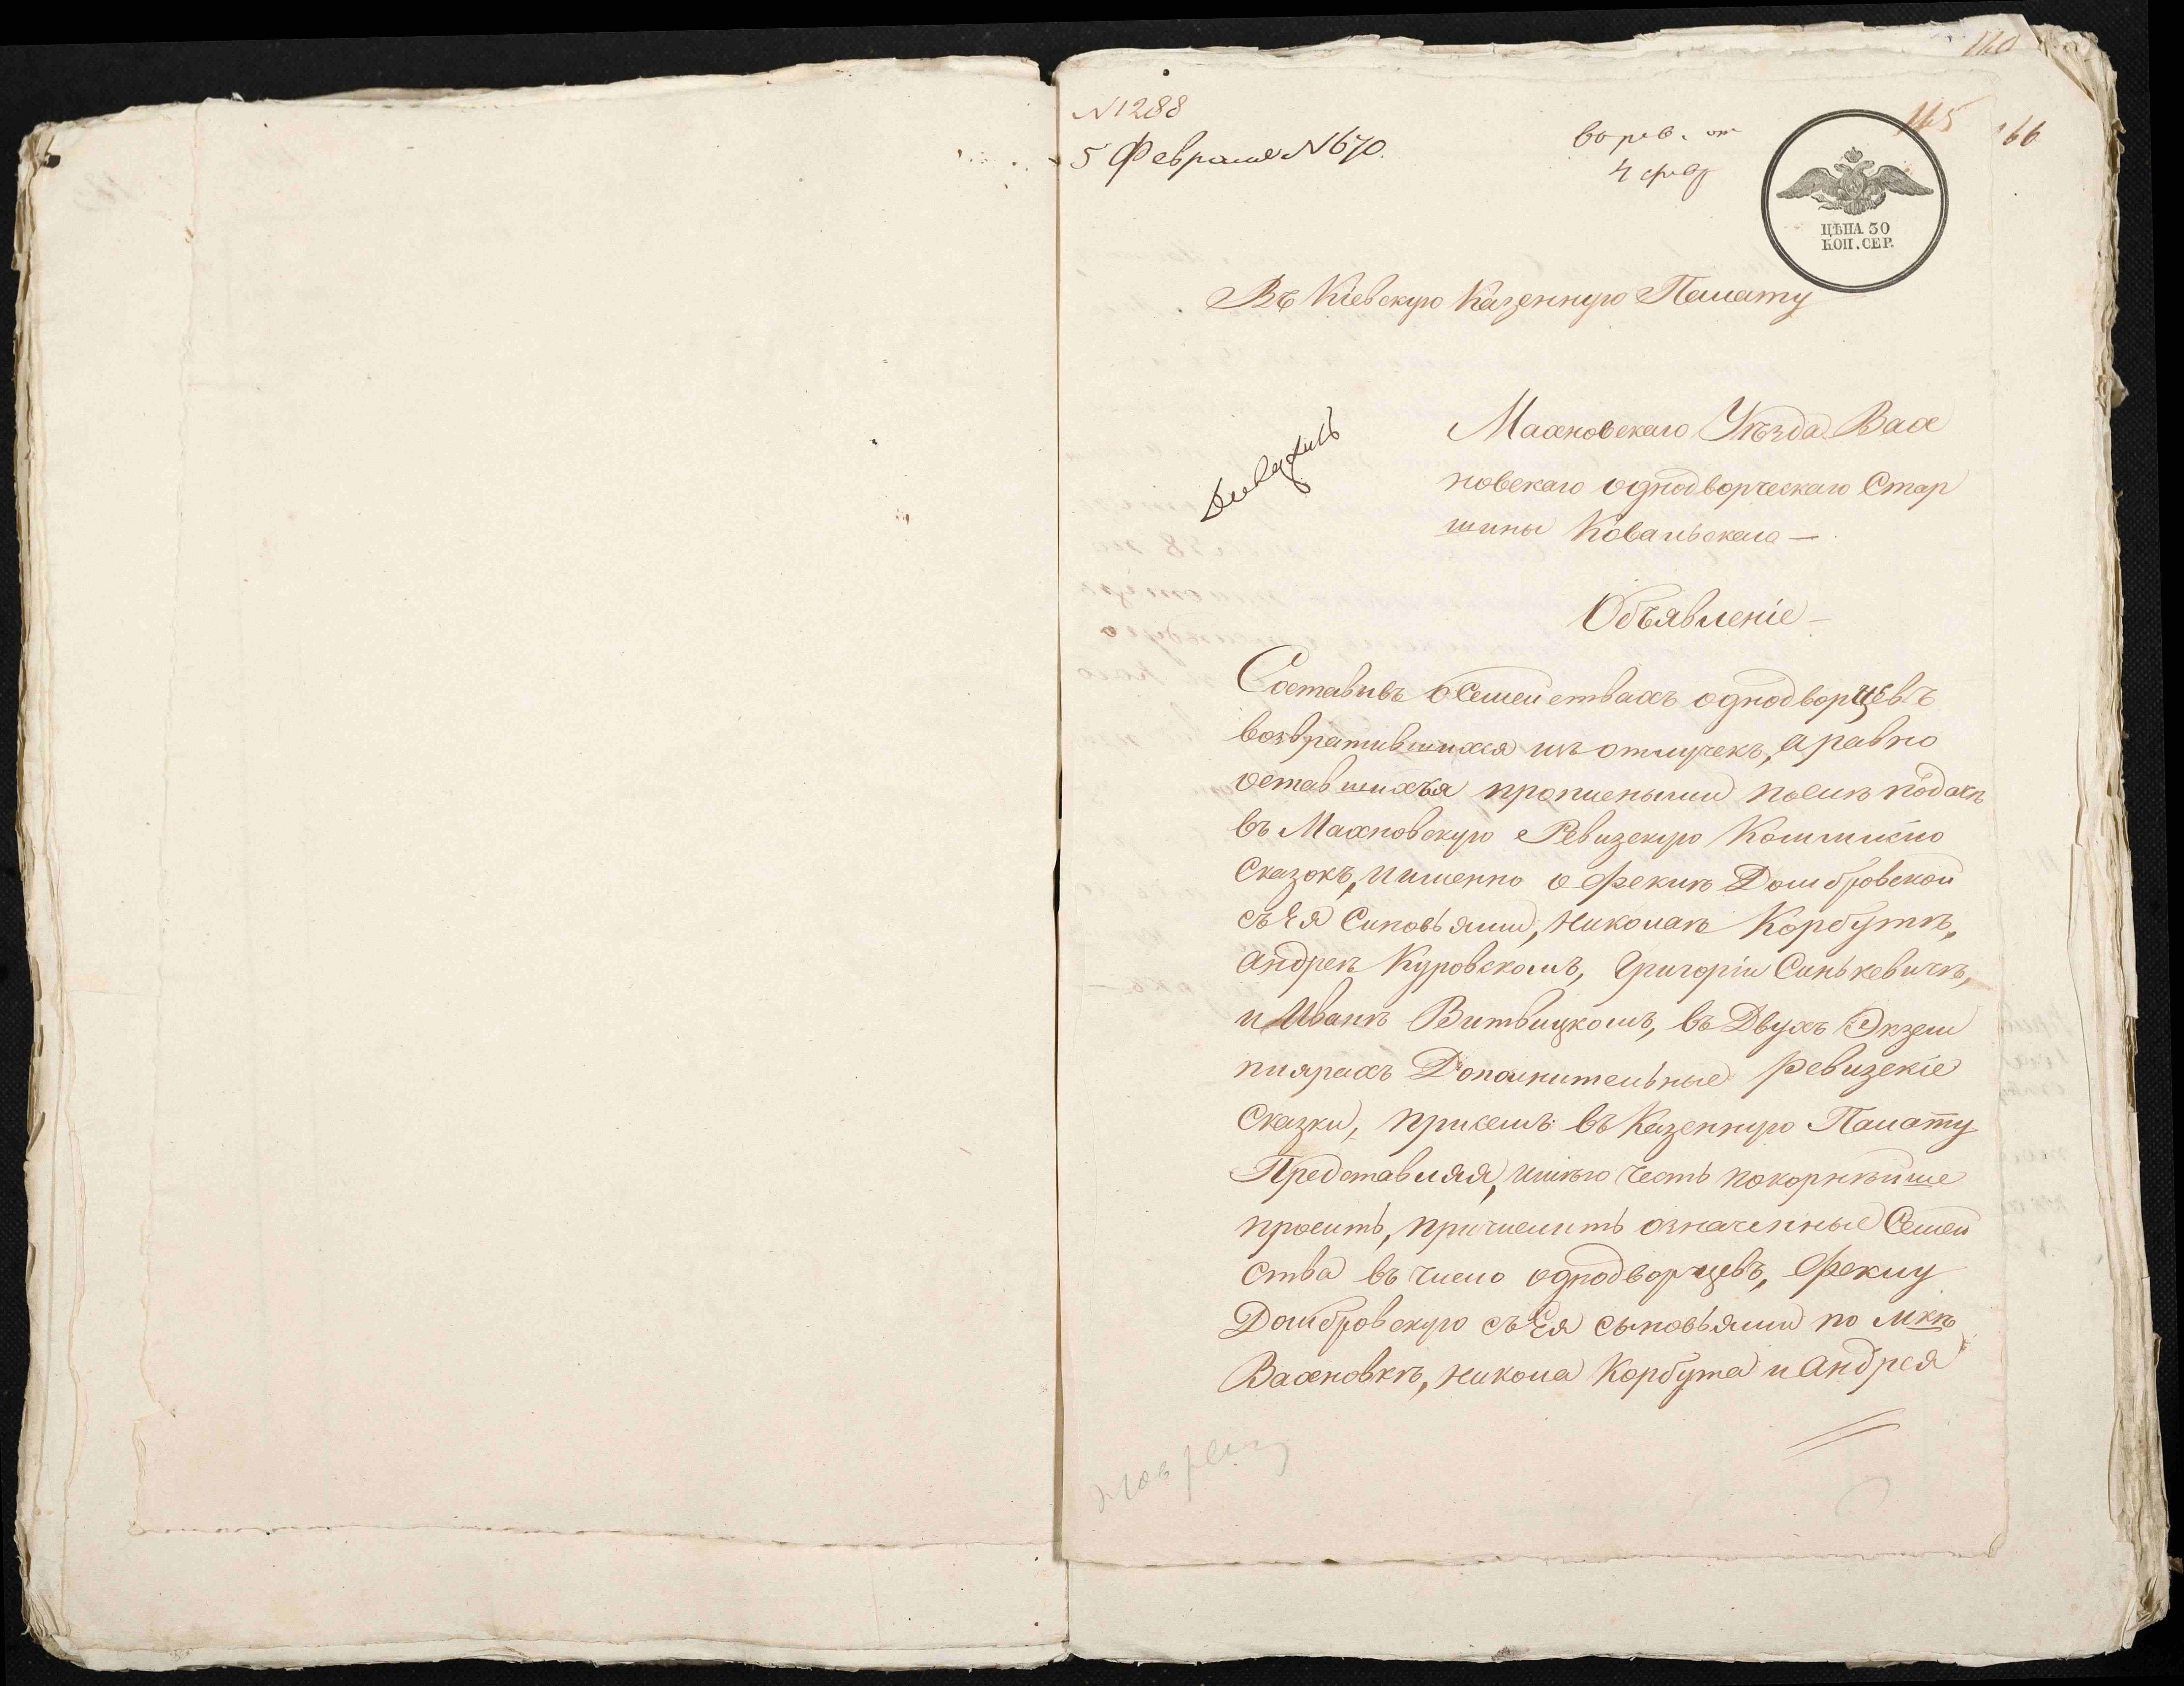 160
N 1288
5 Февраля N 670.
165
166
4 февр
ЦѢНА 30
КОП. СЕР.
Въ Кіевскую Казенную Палату
Махновскаго Уѣзда Вах
новскаго однодворческаго Стар
шины Ковальскаго —
Объявленіе —
Составивъ о Семействахъ однодворцевъ
возвратившихся изъ отлучекъ, а равно
оставшихъся прописными послѣ подачѣ
въ Махновскую Ревизскую Коммисію
Сказокъ, и именно о Феклѣ Домбровской
съ Ея Сыновьями, Николаѣ Корбутѣ,
Андреѣ Куровскомъ, Григоріи Синькевичѣ,
и Иванѣ Витвицкомъ, въ Двухъ Экзем
плярахъ Дополнительные Ревизскіе
Сказки, при семъ въ Казенную Палату
Представляя, имѣю честь покорнѣйше
просить, причислить означенные Семей
ства въ число однодворцевъ, Феклу
Домбровскую съ Ея сыновьями по мкѣ
Вахновкѣ, Никола Корбута и Андрея